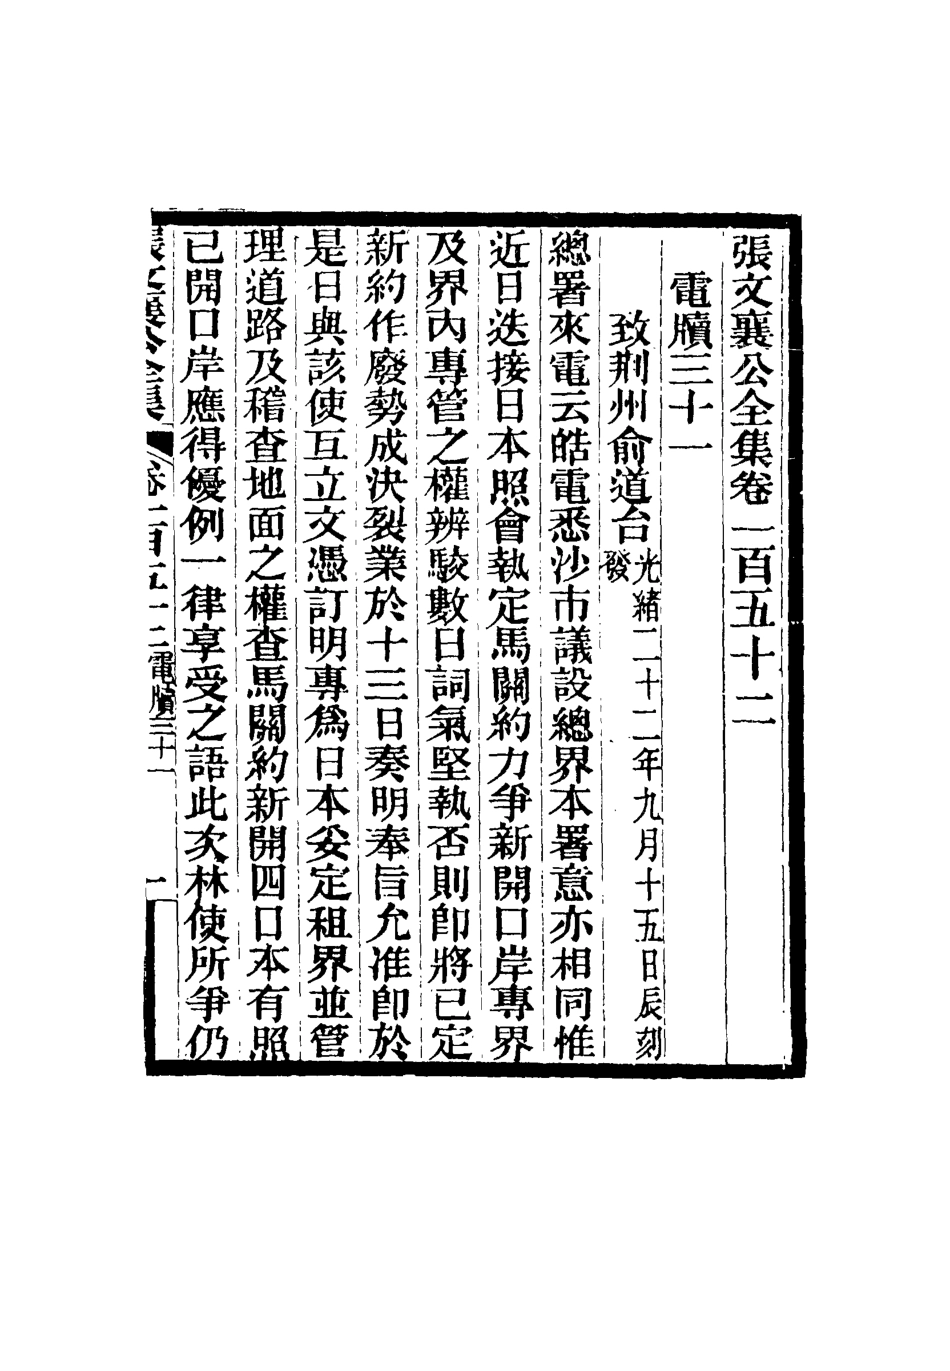 張文襄公全集卷一百五十二
電牘三十一
致荆州俞道台光緒二十二年九月十五日辰刻發
總署來電云皓電悉沙市議設總界本署意亦相同惟
近日迭接日本照會執定馬關約力爭新開口岸專界
及界內專管之權辨駮數日詞氣堅執否則卽將已定
新約作廢勢成決裂業於十三日奏明奉旨允准卽於
是日與該使互立文憑訂明專爲日本妥定租界並管
理道路及稽查地面之權查馬關約新開四口本有照
已開口岸應得優例一律享受之語此次林使所爭仍
張文襄公全集 卷一百五十二 電牘三十一 一